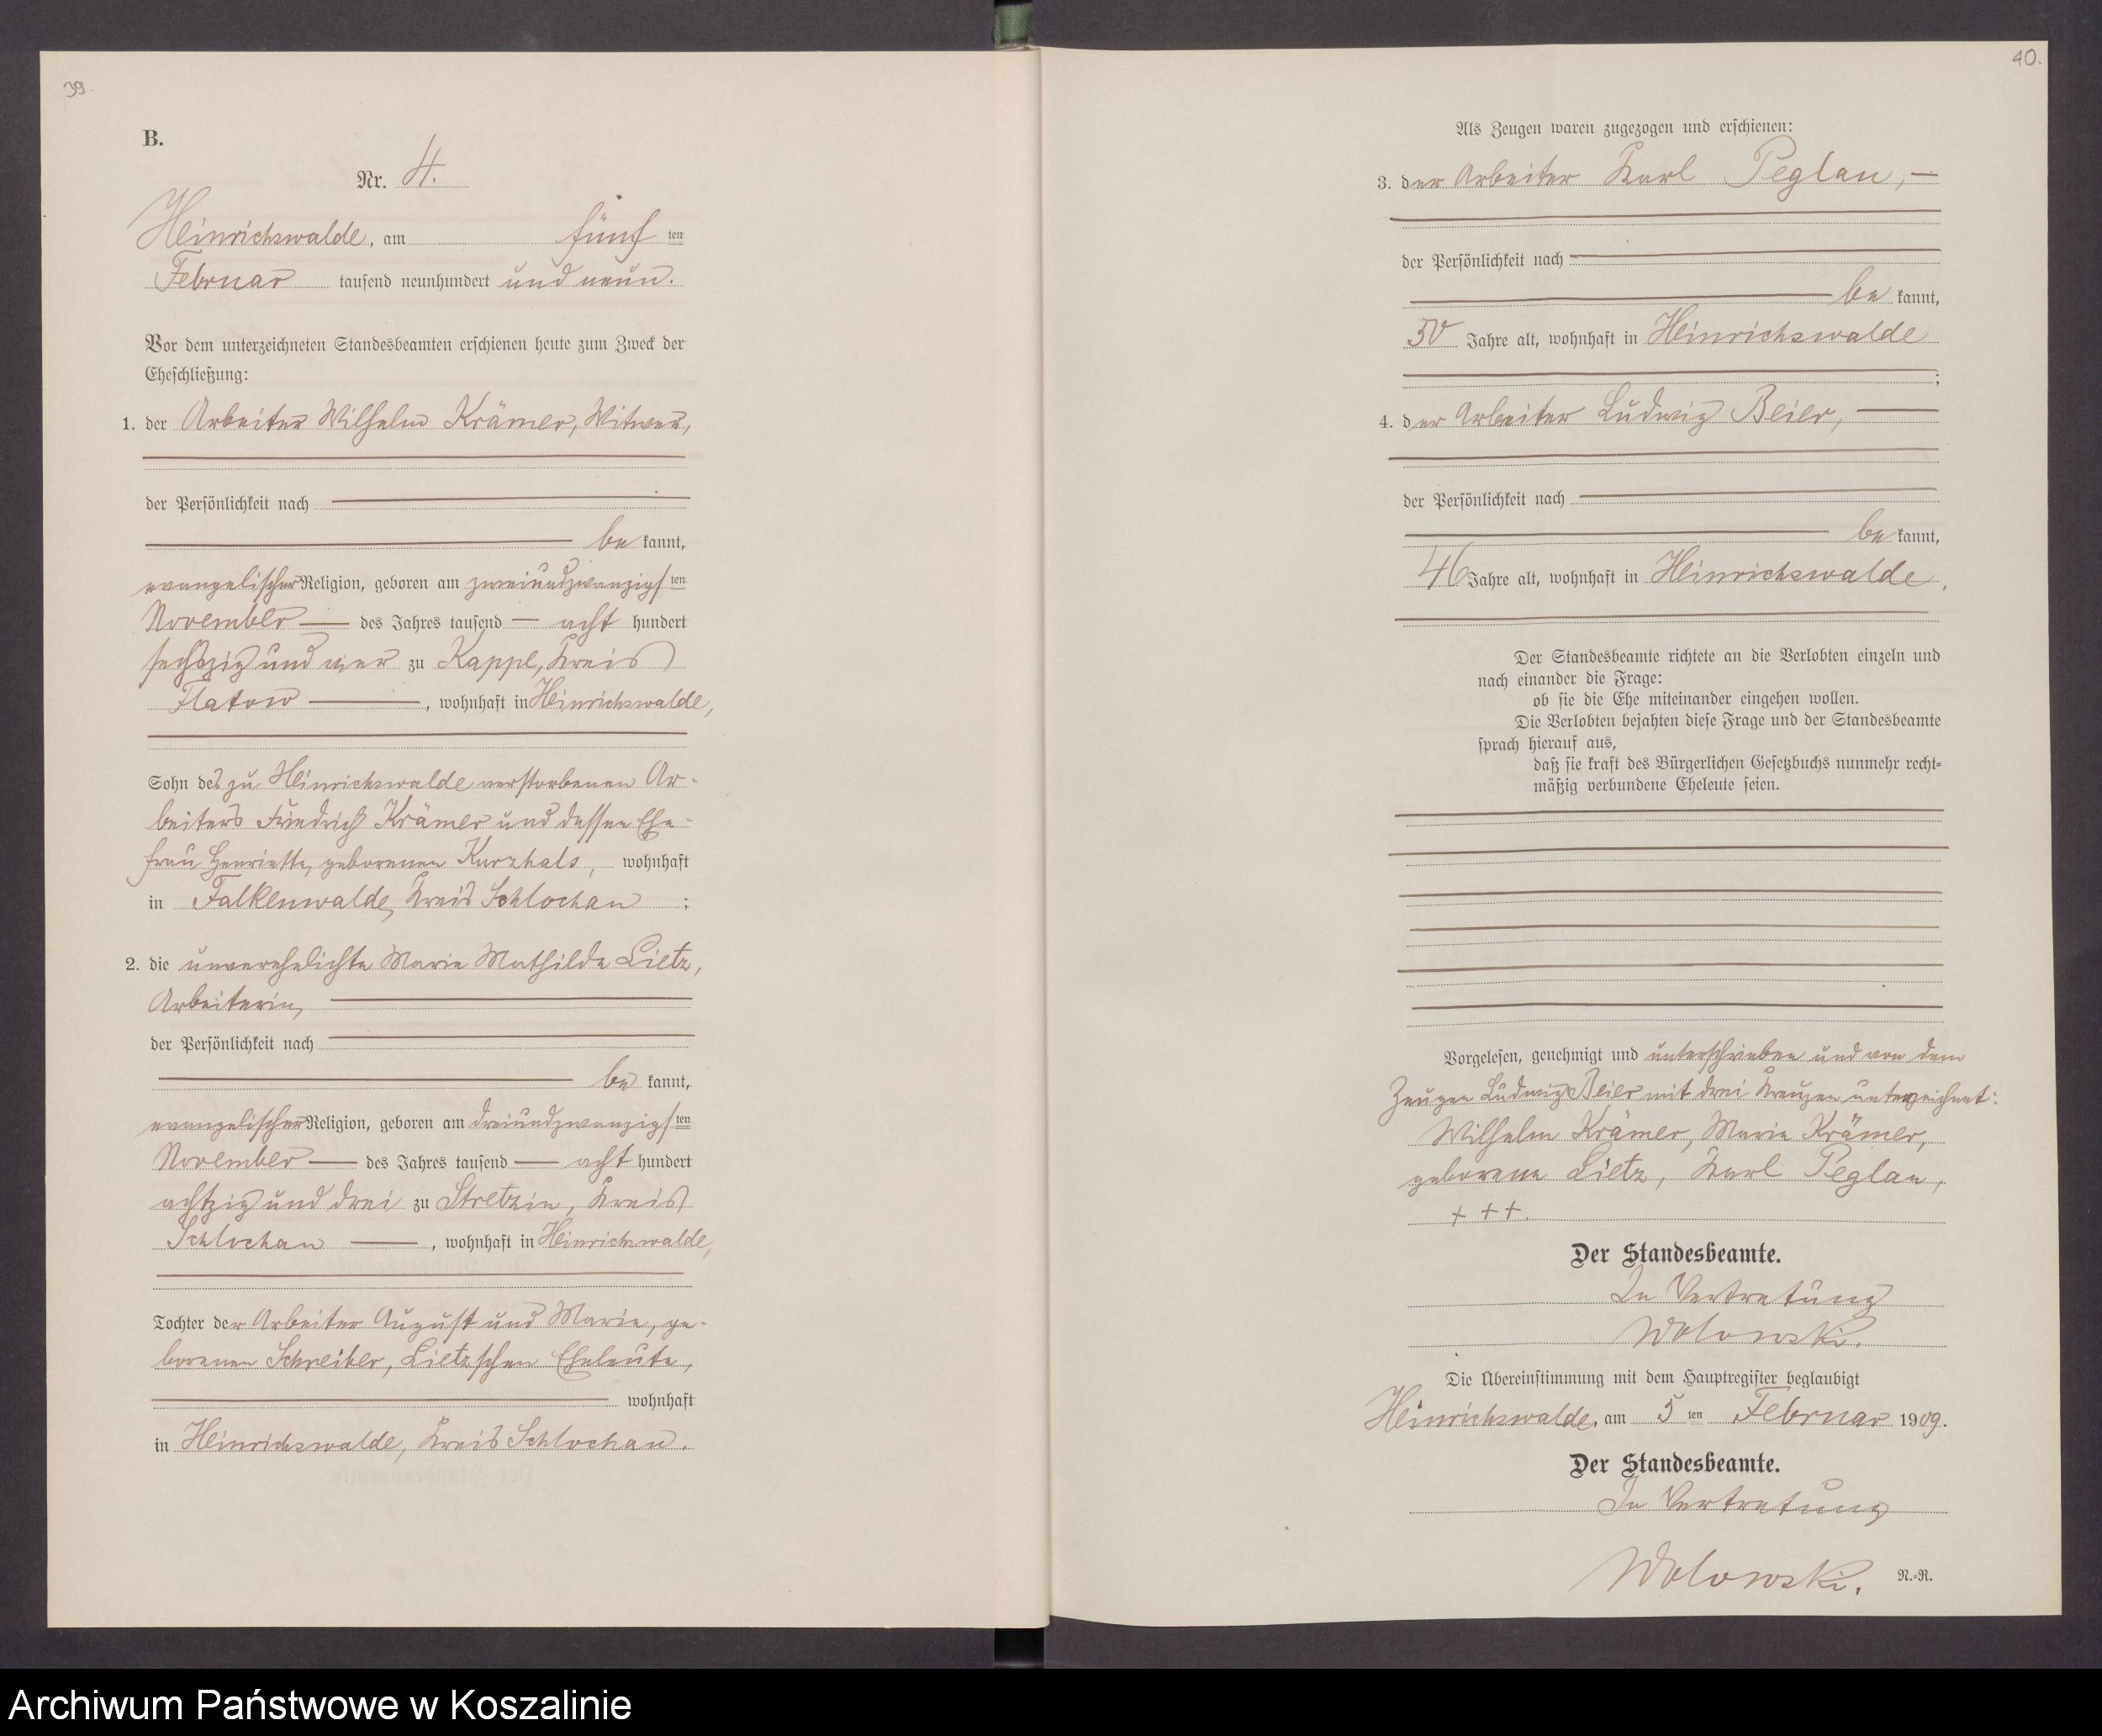 39.
B.
Nr. 4.
Heinrichswalde, am fünf ten
Februar tausend neunhundert und neun.
Vor dem unterzeichneten Standesbeamten erschienen heute zum Zweck der
Eheschließung:
1. der Arbeiter Wilhelm Krämer, Witwer,
der Persönlichkeit nach
be kannt,
evangelischer Religion, geboren am zweiundzwanzigsten
November des Jahres tausend acht hundert
sechszig und vier zu Kappe, Kreis
Flatow, wohnhaft in Heinrichswalde,
Sohn des zu Heinrichswalde verstorbenen Ar-
beiters Friedrich Krämer und dessen Ehe-
frau Henriette, geborenen Kurzhals, wohnhaft
in Falkenwalde, Kreis Schlochau ;
2. die unverehelichte Marie Mathilde Lietz,
Arbeiterin,
der Persönlichkeit nach
be kannt,
evangelischer Religion, geboren am dreiundzwanzigsten
November des Jahres tausend acht hundert
achtzig und drei zu Stretzin, Kreis
Schlochau, wohnhaft in Heinrichswalde,
Tochter der Arbeiter August und Marie, ge-
borenen Schreiber, Lietz'schen Eheleute,
wohnhaft
in Heinrichswalde, Kreis Schlochau.
40.
Als Zeugen waren zugezogen und erschienen:
3. der Arbeiter Karl Peglau,
der Persönlichkeit nach
be kannt,
50 Jahre alt, wohnhaft in Heinrichswalde
;
4. der Arbeiter Ludwig Beier,
der Persönlichkeit nach
be kannt,
46 Jahre alt, wohnhaft in Heinrichswalde.
Der Standesbeamte richtete an die Verlobten einzeln und
nach einander die Frage:
ob sie die Ehe miteinander eingehen wollen.
Die Verlobten bejahten diese Frage und der Standesbeamte
sprach hierauf aus,
daß sie kraft des Bürgerlichen Gesetzbuchs nunmehr recht=
mäßig verbundene Eheleute seien.
Vorgelesen, genehmigt und unterschrieben und von dem
Zeugen Ludwig Beier mit drei Kreuzen unterzeichnet:
Wilhelm Krämer, Marie Krämer,
geborene Lietz, Karl Peglau,
+ + +.
Der Standesbeamte.
In Vertretung
Wolowski.
Die Übereinstimmung mit dem Hauptregister beglaubigt
Heinrichswalde, am 5 ten Februar 1909.
Der Standesbeamte.
In Vertretung
Wolowski. N.=R.
Archiwum Państwowe w Koszalinie